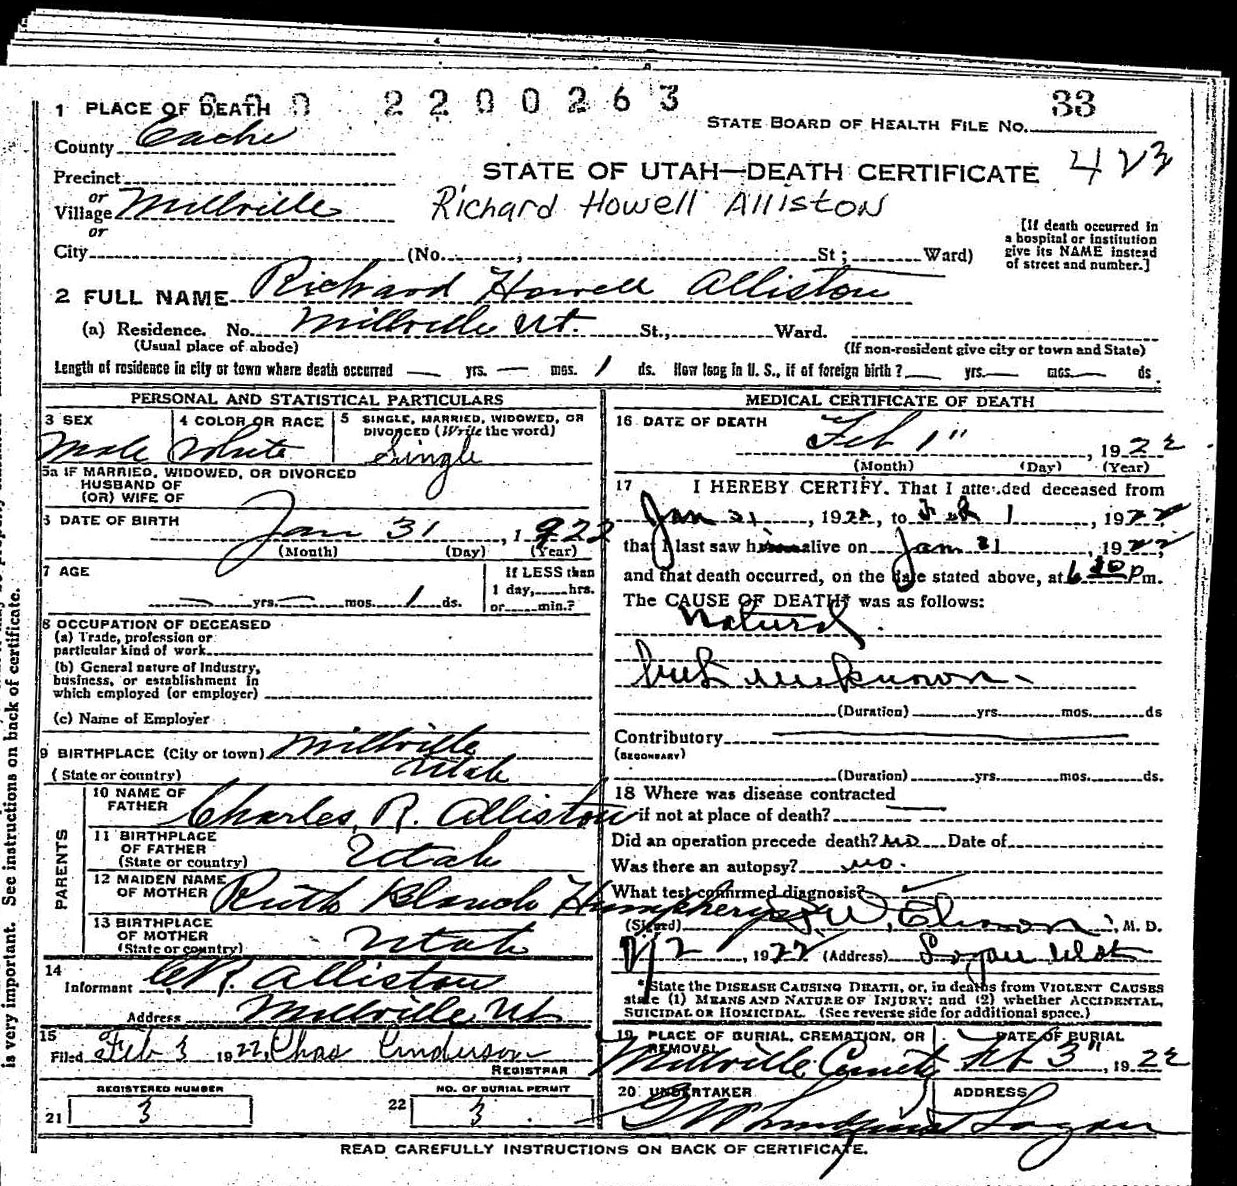 000 2200263
1 PLACE OF DEATH
33
STATE BOARD OF HEALTH FILE No.
County Cache
STATE OF UTAH—DEATH CERTIFICATE
Precinct
or
Village Millville
Richard Howell Alliston
or
[If death occurred in
a hospital or institution
give its NAME instead
of street and number.]
City (No. , St ; Ward)
2 FULL NAME Richard Howell Alliston
(a) Residence. No. Millville Ut. St., Ward.
(Usual place of abode) (If non-resident give city or town and State)
Length of residence in city or town where death occurred — yrs. — mos. 1 ds. How long in U. S., if of foreign birth? — yrs. — mos. — ds.
PERSONAL AND STATISTICAL PARTICULARS
3 SEX 4 COLOR OR RACE 5 SINGLE, MARRIED, WIDOWED, OR DIVORCED (Write the word)
Male White Single
5a IF MARRIED, WIDOWED, OR DIVORCED
HUSBAND OF
(OR) WIFE OF
6 DATE OF BIRTH
Jan 31, 1922
(Month) (Day) (Year)
7 AGE
If LESS than
1 day, hrs.
or min.?
— yrs. — mos. 1 ds.
8 OCCUPATION OF DECEASED
(a) Trade, profession or
particular kind of work
(b) General nature of industry,
business, or establishment in
which employed (or employer)
(c) Name of Employer
9 BIRTHPLACE (City or town) Millville
(State or country) Utah
PARENTS
10 NAME OF
FATHER Charles R. Alliston
11 BIRTHPLACE
OF FATHER
(State or country) Utah
12 MAIDEN NAME
OF MOTHER Ruth Blanch Humpherys
13 BIRTHPLACE
OF MOTHER
(State or country) Utah
14
Informant C R. Alliston
Address Millville Ut
15
Filed Feb 3 1922 Chas Anderson
REGISTRAR
REGISTERED NUMBER NO. OF BURIAL PERMIT
21 3 22 3
MEDICAL CERTIFICATE OF DEATH
16 DATE OF DEATH
Feb 1", 1922
(Month) (Day) (Year)
17 I HEREBY CERTIFY, That I attended deceased from
Jan 31, 1922, to Feb 1, 1922
that I last saw him alive on Jan 31, 1922,
and that death occurred, on the date stated above, at 6 30 Pm.
The CAUSE OF DEATH* was as follows:
Natural
but unknown.
(Duration) yrs. mos. ds
Contributory
(SECONDARY)
(Duration) yrs. mos. ds.
18 Where was disease contracted
if not at place of death?
Did an operation precede death? no Date of
Was there an autopsy? no.
What test confirmed diagnosis?
(Signed) , M. D.
2/2, 1922 (Address) Logan Utah
*State the DISEASE CAUSING DEATH, or, in deaths from VIOLENT CAUSES
state (1) MEANS AND NATURE OF INJURY: and (2) whether ACCIDENTAL,
SUICIDAL OR HOMICIDAL. (See reverse side for additional space.)
19 PLACE OF BURIAL, CREMATION, OR REMOVAL DATE OF BURIAL
Millville Cemety Feb 3", 1922
20 UNDERTAKER ADDRESS
Logan
READ CAREFULLY INSTRUCTIONS ON BACK OF CERTIFICATE.
is very important. See instructions on back of certificate.